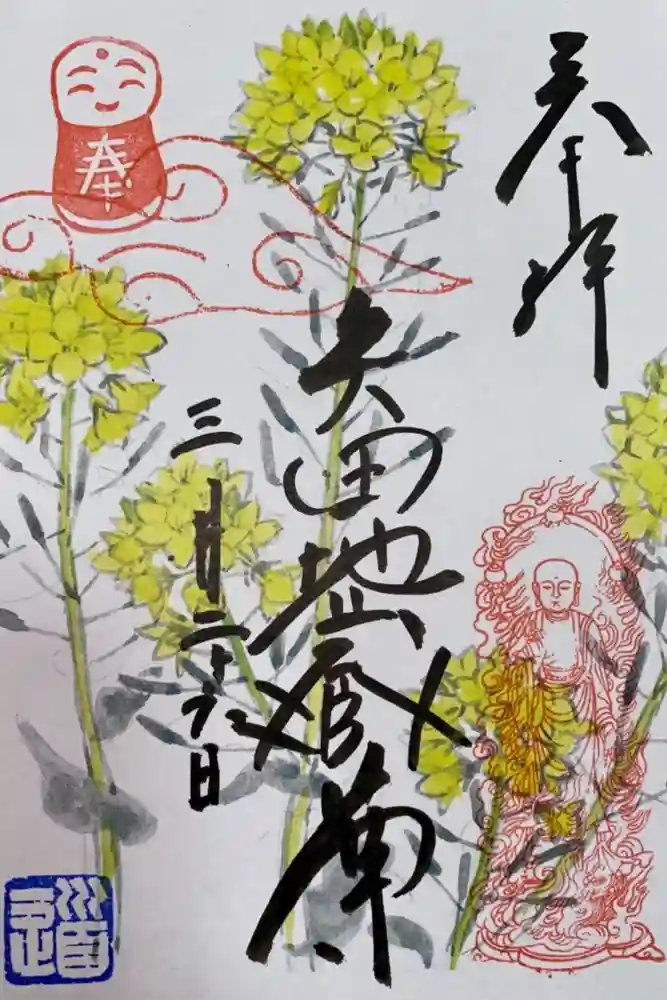 奉拝
矢田地蔵尊
三月二十六日
奉